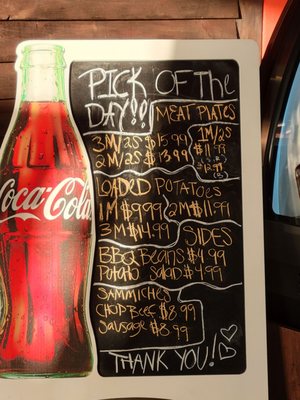 PICK OF THE
DAY!!
MEAT PLATES
3M/2S $15.99
2M/2S $13.99
1M/2S
$11.99
LOADED POTATOES
1M $9.99 2M $11.99
3M $14.99
SIDES
BBQ BEANS $4.99
POTATO SALAD $4.99
SAMMICHES
CHOP BEEF $8.99
SAUSAGE $8.99
THANK YOU!
Coca-Cola